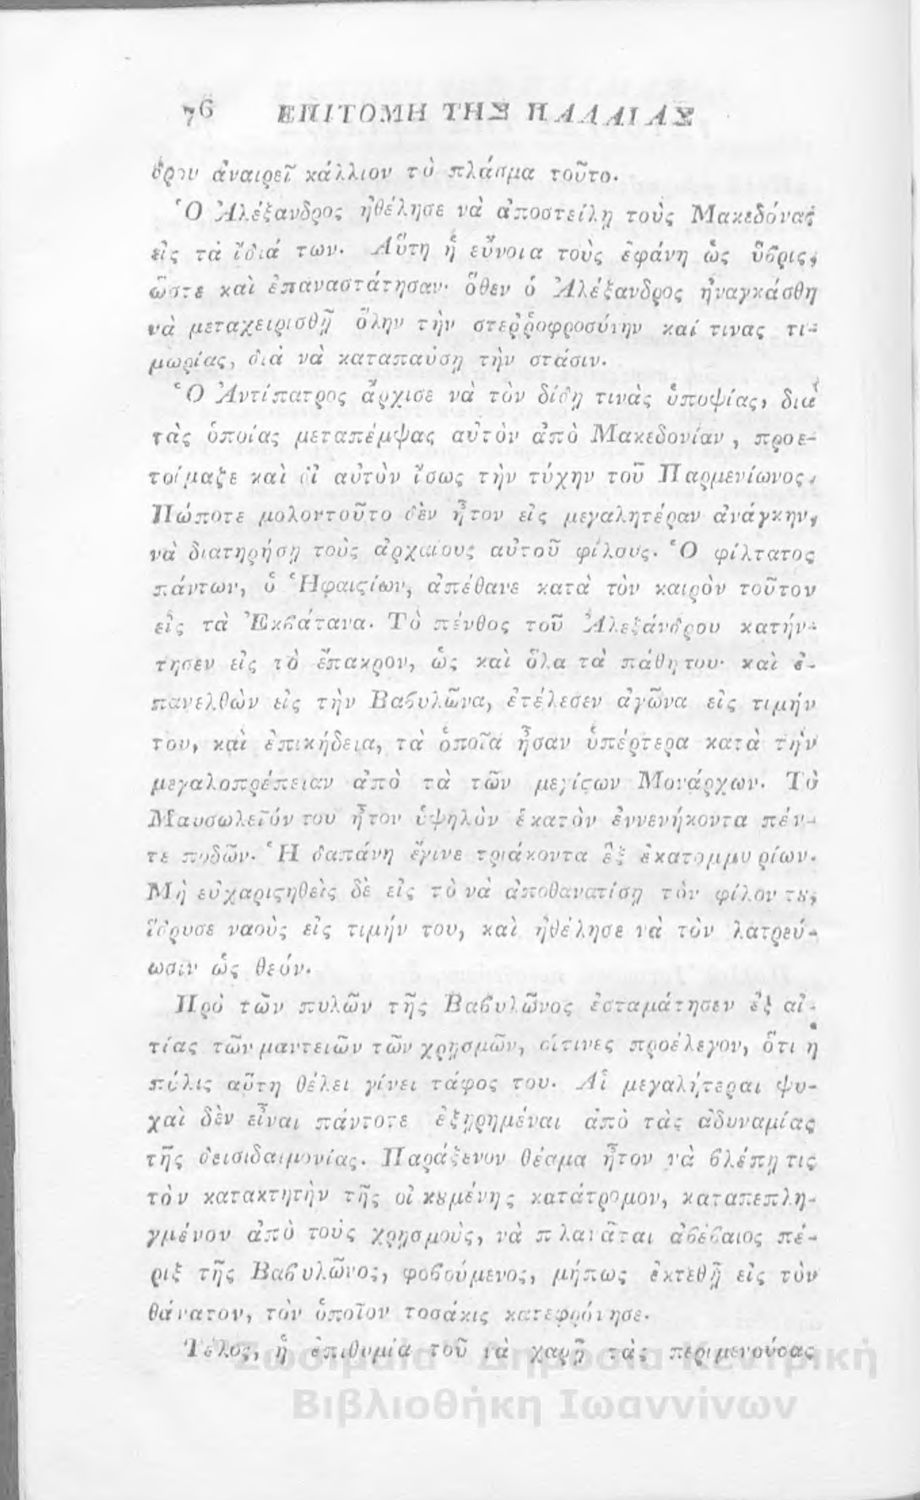 76 ΕΠΙΤΟΜΗ ΤΗΣ ΠΑΛΑΙΑΣ
δρου ἀναιρεῖ κάλλιον τὸ πλάσμα τοῦτο.
Ὁ Ἀλέξανδρος ἠθέλησε νὰ ἀποστείλῃ τοὺς Μακεδόνας
εἰς τὰ ἴδιά των. Αὕτη ἡ εὔνοια τοὺς ἐφάνη ὡς ὕβρις,
ὥστε καὶ ἐπαναστάτησαν· ὅθεν ὁ Ἀλέξανδρος ἠναγκάσθη
νὰ μεταχειρισθῇ ὅλην τὴν στερῥοφροσύνην καί τινας τι-
μωρίας, διὰ νὰ καταπαύσῃ τὴν στάσιν.
Ὁ Ἀντίπατρος ἄρχισε νὰ τὸν δίδῃ τινὰς ὑποψίας, διὰ
τὰς ὁποίας μεταπέμψας αὐτὸν ἀπὸ Μακεδονίαν, προε-
τοίμαζε καὶ δι αὐτὸν ἴσως τὴν τύχην τοῦ Παρμενίωνος.
Πώποτε μολοντοῦτο δὲν ἦτον εἰς μεγαλητέραν ἀνάγκην,
νὰ διατηρήσῃ τοὺς ἀρχαίους αὐτοῦ φίλους. Ὁ φίλτατος
πάντων, ὁ Ἡφαιϛίων, ἀπέθανε κατὰ τὸν καιρὸν τοῦτον
εἰς τὰ Ἐκβάτανα. Τὸ πένθος τοῦ Ἀλεξάνδρου κατήν-
τησεν εἰς τὸ ἔπακρον, ὡς καὶ ὅλα τὰ πάθητου· καὶ ἐ-
πανελθὼν εἰς τὴν Βαϐυλῶνα, ἐτέλεσεν ἀγῶνα εἰς τιμήν
του, καὶ ἐπικήδεια, τὰ ὁποῖα ἦσαν ὑπέρτερα κατὰ τὴν
μεγαλοπρέπειαν ἀπὸ τὰ τῶν μεγίϛων Μονάρχων. Τὸ
Μαυσωλεῖόν του ἦτον ὑψηλὸν ἑκατὸν ἐννενήκοντα πέν-
τε ποδῶν. Ἡ δαπάνη ἔγινε τριάκοντα ἓξ ἑκατομμυρίων.
Μὴ εὐχαριϛηθεὶς δὲ εἰς τὸ νὰ ἀποθανατίσῃ τὸν φίλον τȣ,
ἵδρυσε ναοὺς εἰς τιμήν του, καὶ ἠθέλησε νὰ τὸν λατρεύ-
ωσιν ὡς θεόν.
Πρὸ τῶν πυλῶν τῆς Βαϐυλῶνος ἐσταμάτησεν ἐξ αἰ-
τίας τῶν μαντειῶν τῶν χρησμῶν, οἵτινες προέλεγον, ὅτι ἡ
πόλις αὕτη θέλει γίνει τάφος του. Αἱ μεγαλήτεραι ψυ-
χαὶ δὲν εἶναι πάντοτε ἐξῃρημέναι ἀπὸ τὰς ἀδυναμίας
τῆς δεισιδαιμονίας. Παράξενον θέαμα ἦτον νὰ ϐλέπῃ τις
τὸν κατακτητὴν τῆς οἰκȣμένης κατάτρομον, καταπεπλη-
γμένον ἀπὸ τοὺς χρησμοὺς, νὰ πλανᾶται ἀϐέϐαιος πέ-
ριξ τῆς Βαϐυλῶνος, φοϐούμενος, μήπως ἐκτεθῇ εἰς τὸν
θάνατον, τὸν ὁποῖον τοσάκις κατεφρόνησε.
Τέλος, ἡ ἐπιθυμία τοῦ νὰ χαρῇ τὰς περιμενούσας
Ζωσιμαία Δημόσια Κεντρική
Βιβλιοθήκη Ιωαννίνων